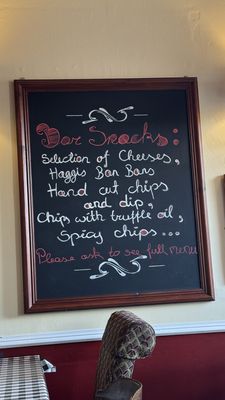 Bar Snacks:
Selection of Cheeses,
Haggis Bon Bons
Hand cut chips
and dip,
Chips with truffle oil,
Spicy chips...
Please ask to see full menu